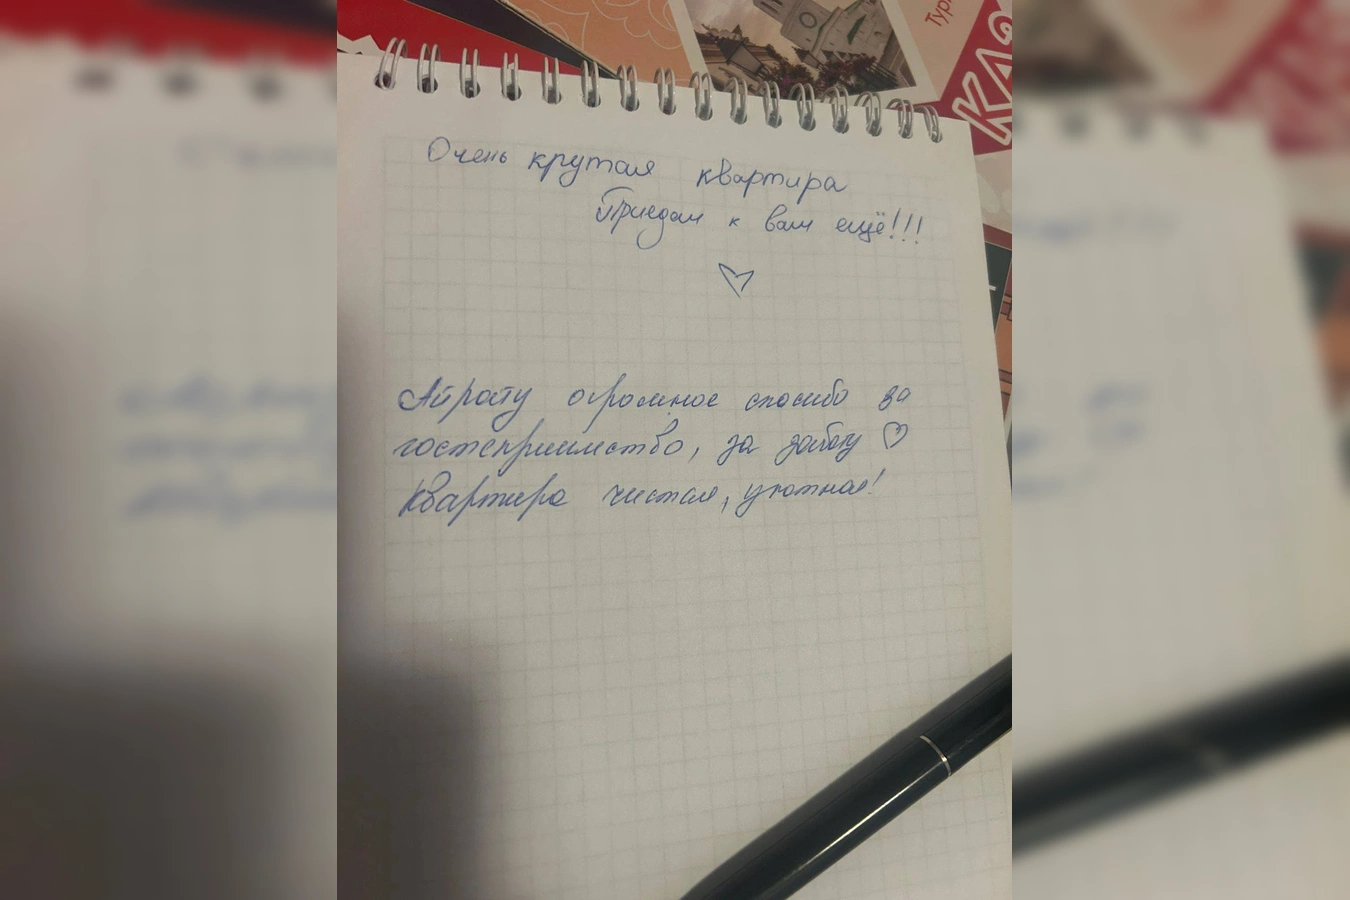 Тур
КАЗ
Очень крутая квартира
Приедем к вам ещё!!!
Айрату огромное спасибо за
гостеприимство, за заботу ♡
Квартира чистая, уютная!